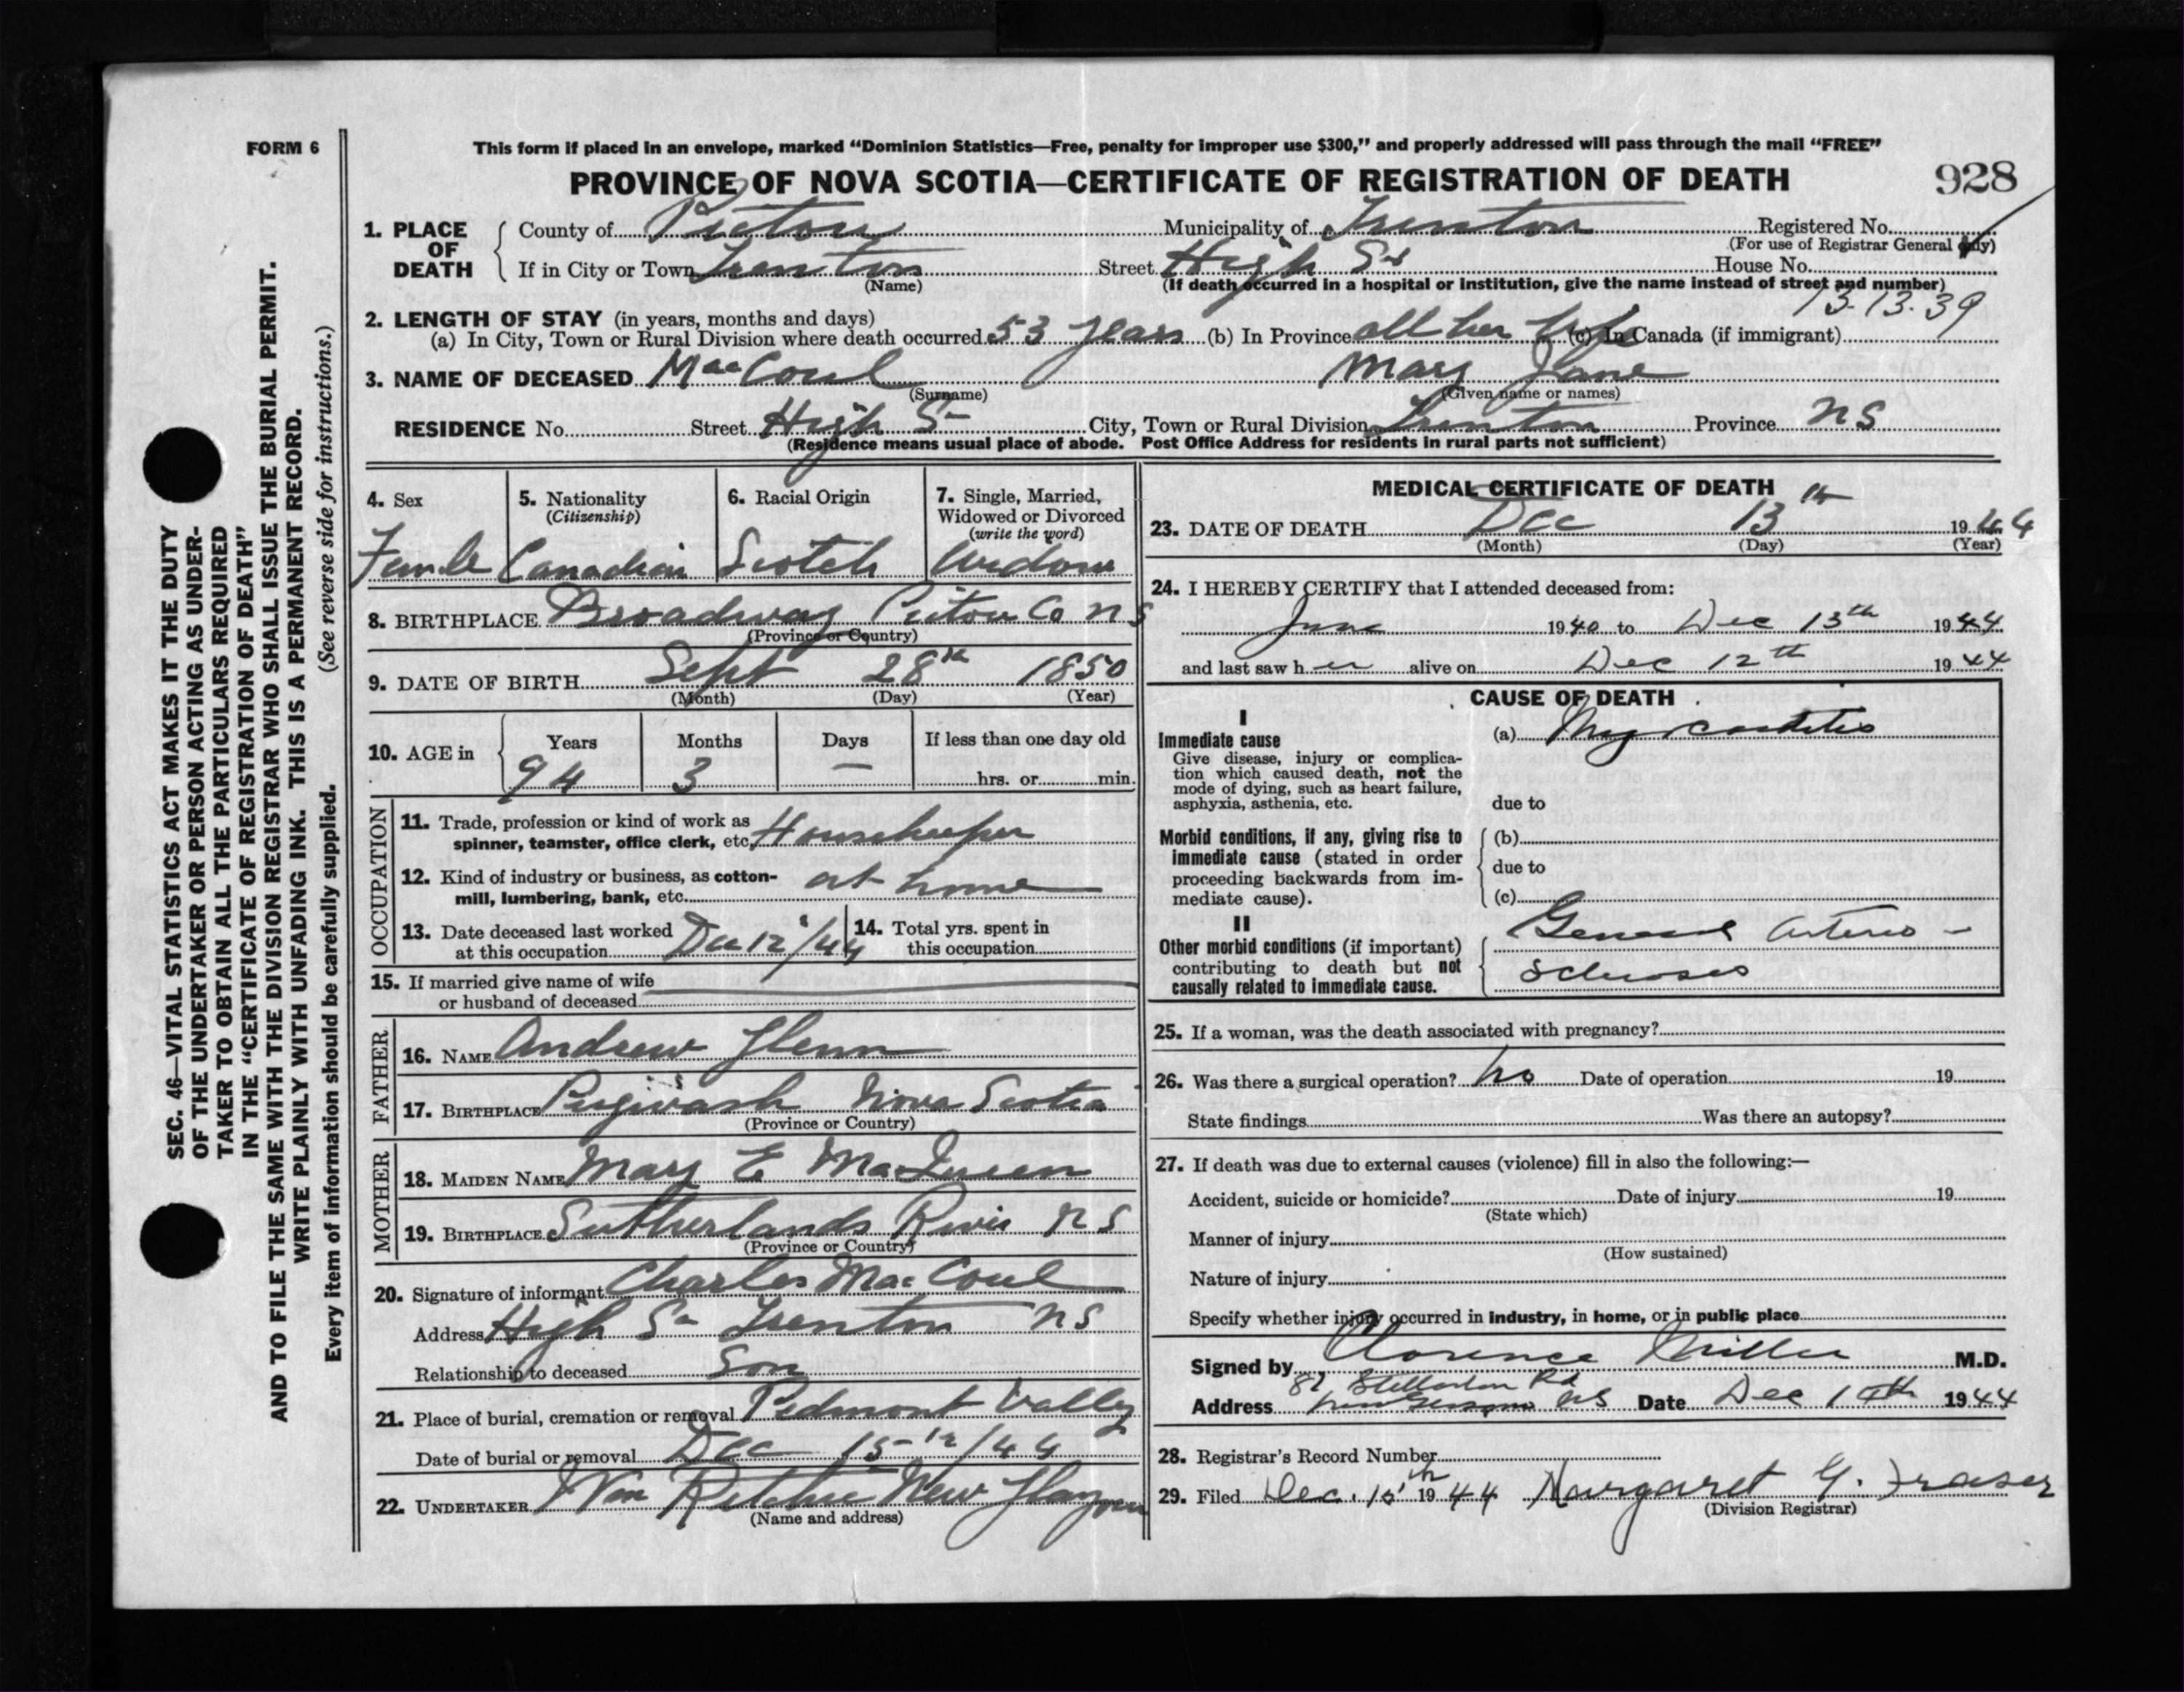 FORM 6
This form if placed in an envelope, marked “Dominion Statistics—Free, penalty for improper use $300,” and properly addressed will pass through the mail “FREE”
PROVINCE OF NOVA SCOTIA—CERTIFICATE OF REGISTRATION OF DEATH
928
1. PLACE OF DEATH
County of Pictou Municipality of Trenton Registered No.
(For use of Registrar General only)
If in City or Town Trenton Street High St House No.
(Name) (If death occurred in a hospital or institution, give the name instead of street and number)
13-13-39
2. LENGTH OF STAY (in years, months and days)
(a) In City, Town or Rural Division where death occurred 53 years (b) In Province all her life (c) In Canada (if immigrant)
3. NAME OF DECEASED MacCoul Mary Jane
(Surname) (Given name or names)
RESIDENCE No. Street High St City, Town or Rural Division Trenton Province NS
(Residence means usual place of abode. Post Office Address for residents in rural parts not sufficient)
4. Sex
Female
5. Nationality
(Citizenship)
Canadian
6. Racial Origin
Scotch
7. Single, Married,
Widowed or Divorced
(write the word)
Widow
8. BIRTHPLACE Broadway Pictou Co NS
(Province or Country)
9. DATE OF BIRTH Sept 28th 1850
(Month) (Day) (Year)
10. AGE in
Years Months Days If less than one day old
94 3 — hrs. or min.
OCCUPATION
11. Trade, profession or kind of work as
spinner, teamster, office clerk, etc. Housekeeper
12. Kind of industry or business, as cotton-
mill, lumbering, bank, etc. at home
13. Date deceased last worked
at this occupation Dec 12/44
14. Total yrs. spent in
this occupation
15. If married give name of wife
or husband of deceased
FATHER
16. NAME Andrew Glenn
17. BIRTHPLACE Pugwash Nova Scotia
(Province or Country)
MOTHER
18. MAIDEN NAME Mary E MacQueen
19. BIRTHPLACE Sutherlands River NS
(Province or Country)
20. Signature of informant Charles MacCoul
Address High St Trenton NS
Relationship to deceased Son
21. Place of burial, cremation or removal Pidmont Valley
Date of burial or removal Dec 15th/44
22. UNDERTAKER Wm Ritchie New Glasgow
(Name and address)
MEDICAL CERTIFICATE OF DEATH
23. DATE OF DEATH Dec 13th 1944
(Month) (Day) (Year)
24. I HEREBY CERTIFY that I attended deceased from:
June 1940 to Dec 13th 1944
and last saw her alive on Dec 12th 1944
CAUSE OF DEATH
I
Immediate cause
Give disease, injury or complica-
tion which caused death, not the
mode of dying, such as heart failure,
asphyxia, asthenia, etc.
(a) Myocarditis
due to
Morbid conditions, if any, giving rise to
immediate cause (stated in order
proceeding backwards from im-
mediate cause).
(b)
due to
(c)
II
Other morbid conditions (if important)
contributing to death but not
causally related to immediate cause.
General Arterio-
sclerosis
25. If a woman, was the death associated with pregnancy?
26. Was there a surgical operation? no Date of operation 19
State findings Was there an autopsy?
27. If death was due to external causes (violence) fill in also the following:—
Accident, suicide or homicide? Date of injury 19
(State which)
Manner of injury
(How sustained)
Nature of injury
Specify whether injury occurred in industry, in home, or in public place
Signed by Clarence Miller M.D.
81 Stellarton Rd
Address New Glasgow NS Date Dec 1944
28. Registrar's Record Number
29. Filed Dec. 15th 1944 Margaret G. Fraser
(Division Registrar)
SEC. 46—VITAL STATISTICS ACT MAKES IT THE DUTY
OF THE UNDERTAKER OR PERSON ACTING AS UNDER-
TAKER TO OBTAIN ALL THE PARTICULARS REQUIRED
IN THE “CERTIFICATE OF REGISTRATION OF DEATH”
AND TO FILE THE SAME WITH THE DIVISION REGISTRAR WHO SHALL ISSUE THE BURIAL PERMIT.
WRITE PLAINLY WITH UNFADING INK. THIS IS A PERMANENT RECORD.
Every item of information should be carefully supplied. (See reverse side for instructions.)